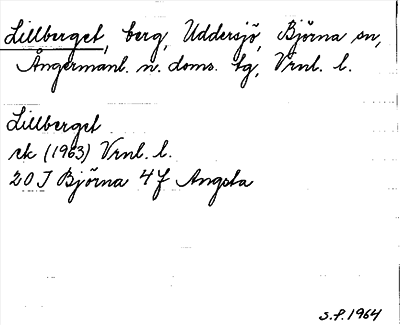 Lillberget, berg, Uddersjö, Björna sn,
Ångermanl. n. doms. tg, Vrnl. l.
Lillberget
ek (1963) Vrnl. l.
20 J Björna 4 f Angsta
S.P. 1964